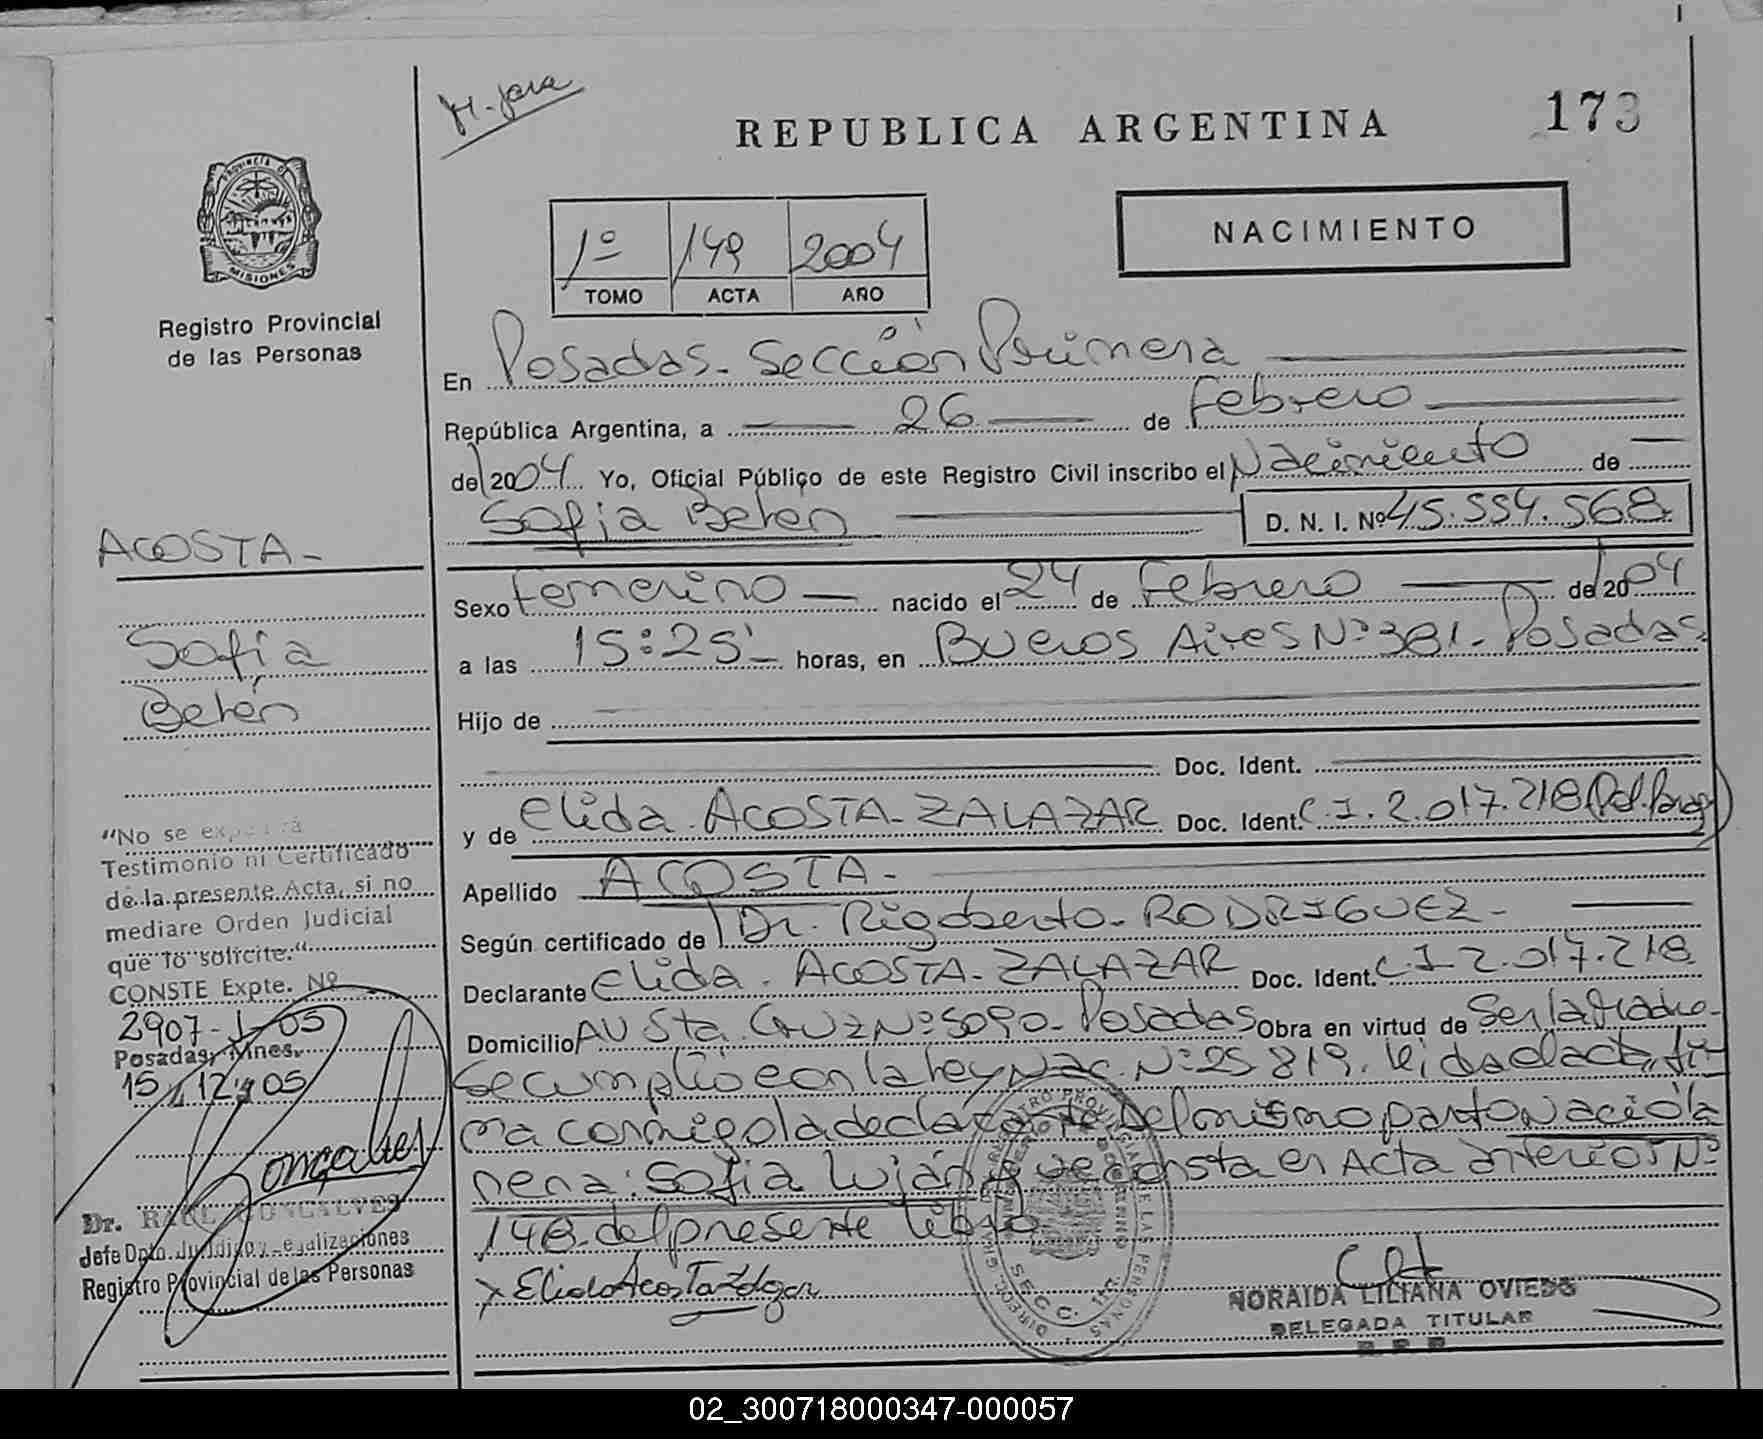 M. Jara
REPUBLICA ARGENTINA
173
PROVINCIA D
MISIONES
Registro Provincial
de las Personas
1º 149 2004
TOMO ACTA AÑO
NACIMIENTO
En Posadas - Sección Primera
República Argentina, a 26 de Febrero
de 2004 Yo, Oficial Público de este Registro Civil inscribo el Nacimiento de
Sofia Belen D. N. I. Nº 45.554.568
Sexo Femenino nacido el 24 de Febrero de 2004
a las 15:25' horas, en Buenos Aires Nº 381 - Posadas
Hijo de
Doc. Ident.
y de Elida ACOSTA - ZALAZAR Doc. Ident. C.I. 2.017.218 (Pol. Parag)
Apellido ACOSTA -
Según certificado de Dr. Rigoberto - RODRIGUEZ -
Declarante Elida. ACOSTA - ZALAZAR Doc. Ident. C.I 2.017.218
Domicilio AV Sta. Cruz Nº 5090 - Posadas Obra en virtud de Ser la Madre -
Se cumplió con la ley Nac. Nº 25 819. Leida el acta, fir
ma conmigo la declarante Del mismo parto Nació la
nena: Sofia Luján que consta en Acta Anterior Nº
148 del presente libro
x Elida Acosta Zalazar
SECC. 1ra.
NORAIDA LILIANA OVIEDO
DELEGADA TITULAR
R P P
ACOSTA -
Sofia
Belén
"No se expedirá
Testimonio ni Certificado
de la presente Acta, si no
mediare Orden Judicial
que lo solicite."
CONSTE Expte. Nº
2907-J-05
Posadas, Mnes.
15 / 12 / 05
Gonçalves
Dr. RAUL GONCALVES
Jefe Dpto. Jurídico y Legalizaciones
Registro Provincial de las Personas
02_300718000347-000057